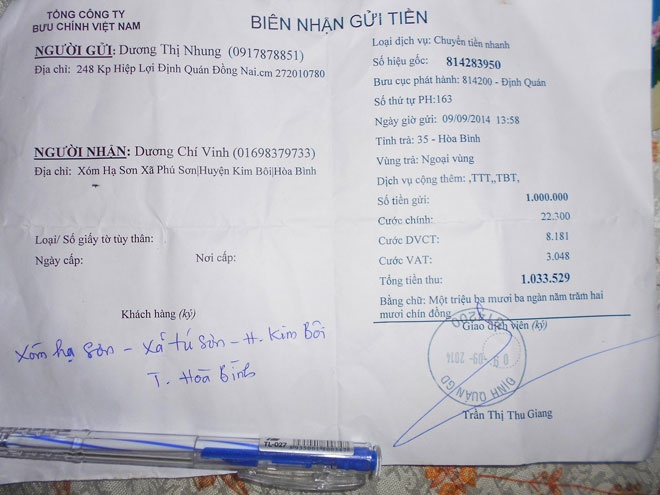 TỔNG CÔNG TY
BƯU CHÍNH VIỆT NAM
BIÊN NHẬN GỬI TIỀN
NGƯỜI GỬI: Dương Thị Nhung (0917878851)
Địa chỉ: 248 Kp Hiệp Lợi Định Quán Đồng Nai.cm 272010780
NGƯỜI NHẬN: Dương Chí Vinh (01698379733)
Địa chỉ: Xóm Hạ Sơn Xã Phú Sơn|Huyện Kim Bôi|Hòa Bình
Loại/ Số giấy tờ tùy thân:
Ngày cấp: Nơi cấp:
Khách hàng (ký)
Xóm hạ Sơn - Xã tú Sơn - H. Kim Bôi
T. Hoà Bình
Loại dịch vụ: Chuyển tiền nhanh
Số hiệu gốc: 814283950
Bưu cục phát hành: 814200 - Định Quán
Số thứ tự PH:163
Ngày giờ gửi: 09/09/2014 13:58
Tỉnh trả: 35 - Hòa Bình
Vùng trả: Ngoại vùng
Dịch vụ cộng thêm: ,TTT,,TBT,
Số tiền gửi: 1.000.000
Cước chính: 22.300
Cước DVCT: 8.181
Cước VAT: 3.048
Tổng tiền thu: 1.033.529
Bằng chữ: Một triệu ba mươi ba ngàn năm trăm hai
mươi chín đồng
Giao dịch viên (ký)
814200
09-09-2014
ĐỊNH QUÁN GD
Trần Thị Thu Giang
TL-027